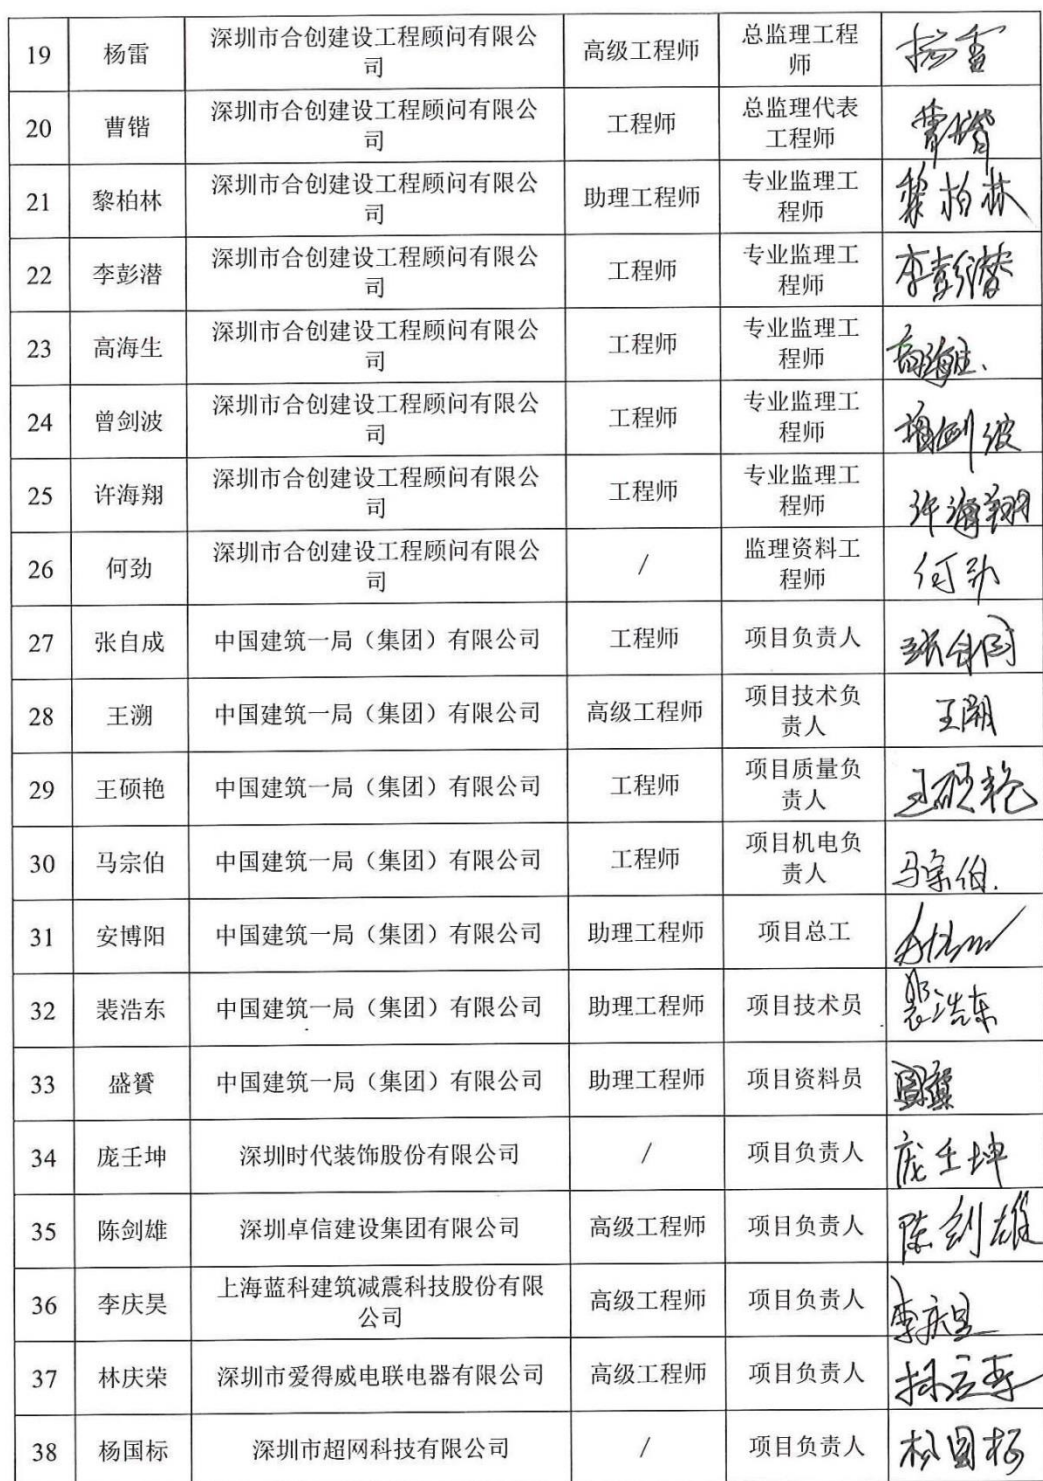 19 杨雷 深圳市合创建设工程顾问有限公 高级工程师 总监理工程 杨雷
司 师
20 曹锴 深圳市合创建设工程顾问有限公 工程师 总监理代表 曹锴
司 工程师
21 黎柏林 深圳市合创建设工程顾问有限公 助理工程师 专业监理工 黎柏林
司 程师
22 李彭潜 深圳市合创建设工程顾问有限公 工程师 专业监理工 李彭潜
司 程师
23 高海生 深圳市合创建设工程顾问有限公 工程师 专业监理工 高海生
司 程师
24 曾剑波 深圳市合创建设工程顾问有限公 工程师 专业监理工 曾剑波
司 程师
25 许海翔 深圳市合创建设工程顾问有限公 工程师 专业监理工 许海翔
司 程师
26 何劲 深圳市合创建设工程顾问有限公 / 监理资料工 何劲
司 程师
27 张自成 中国建筑一局（集团）有限公司 工程师 项目负责人
28 王溯 中国建筑一局（集团）有限公司 高级工程师 项目技术负 王溯
责人
29 王硕艳 中国建筑一局（集团）有限公司 工程师 项目质量负 王硕艳
责人
30 马宗伯 中国建筑一局（集团）有限公司 工程师 项目机电负 马宗伯.
责人
31 安博阳 中国建筑一局（集团）有限公司 助理工程师 项目总工
32 裴浩东 中国建筑一局（集团）有限公司 助理工程师 项目技术员 裴浩东
33 盛赟 中国建筑一局（集团）有限公司 助理工程师 项目资料员
34 庞壬坤 深圳时代装饰股份有限公司 / 项目负责人 庞壬坤
35 陈剑雄 深圳卓信建设集团有限公司 高级工程师 项目负责人 陈剑雄
36 李庆昊 上海蓝科建筑减震科技股份有限 高级工程师 项目负责人 李庆昊
公司
37 林庆荣 深圳市爱得威电联电器有限公司 高级工程师 项目负责人
38 杨国标 深圳市超网科技有限公司 / 项目负责人 杨国标